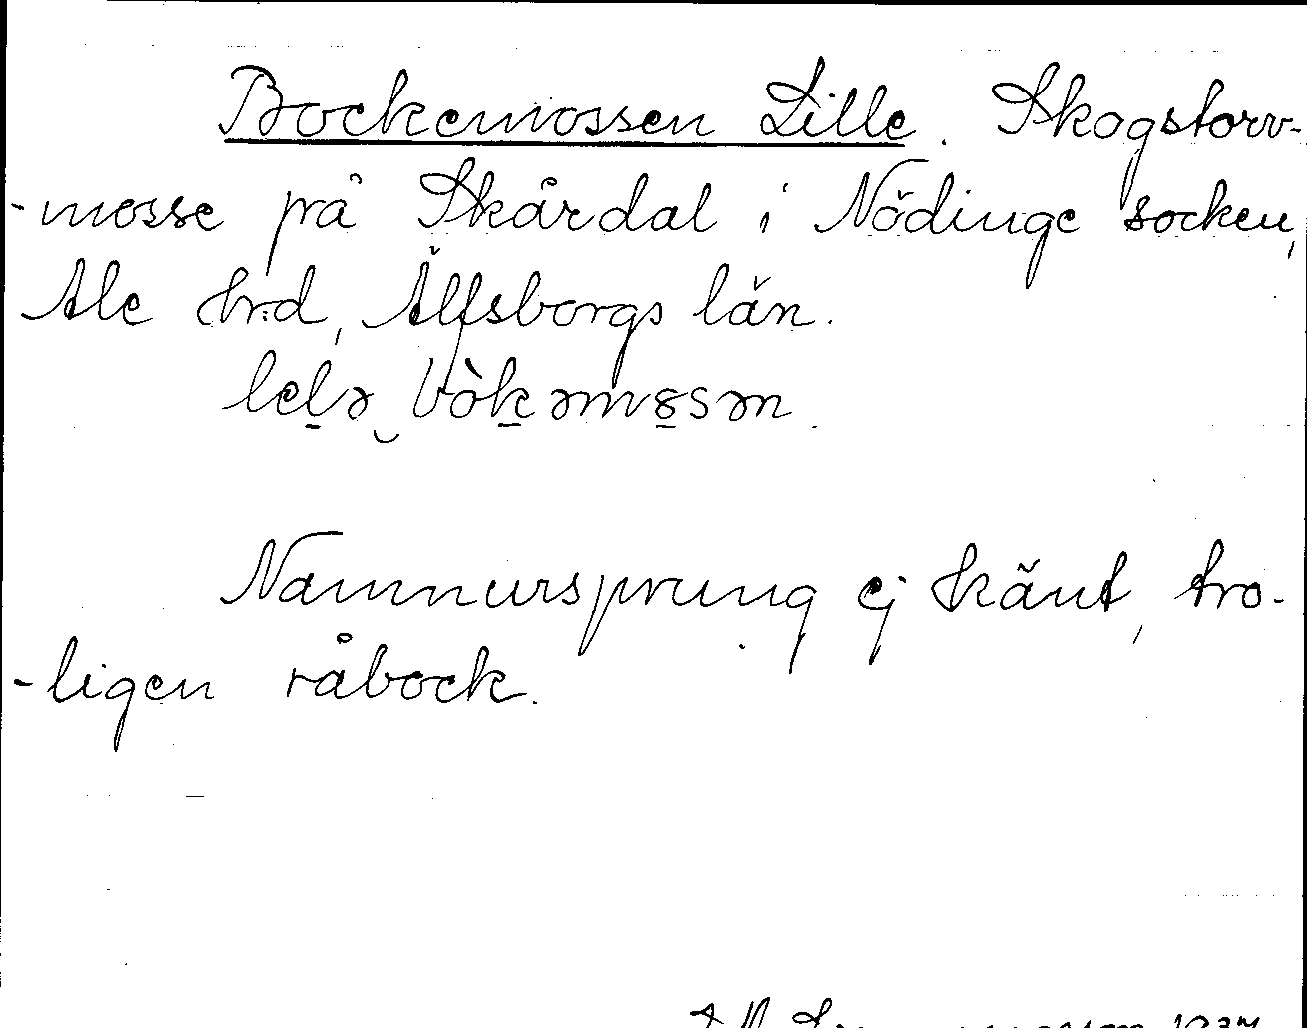 Bockemossen Lille. Skogstorv-
-mosse på Skårdal i Nödinge socken,
Ale hrd, Älfsborgs län.
lelə bòkəmɵsən.
Namnursprung ej känt, tro-
-ligen råbock.